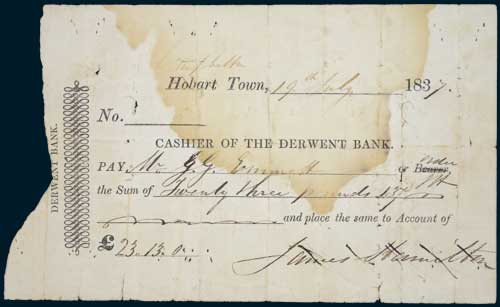 DERWENT BANK.
Hobart Town, 19th July 1837.
No.
CASHIER OF THE DERWENT BANK.
order
PAY Mr G.G. Emmett or Bearer
the Sum of Twenty three pounds 13/
and place the same to Account of
£ 23.13.0
James Hamilton